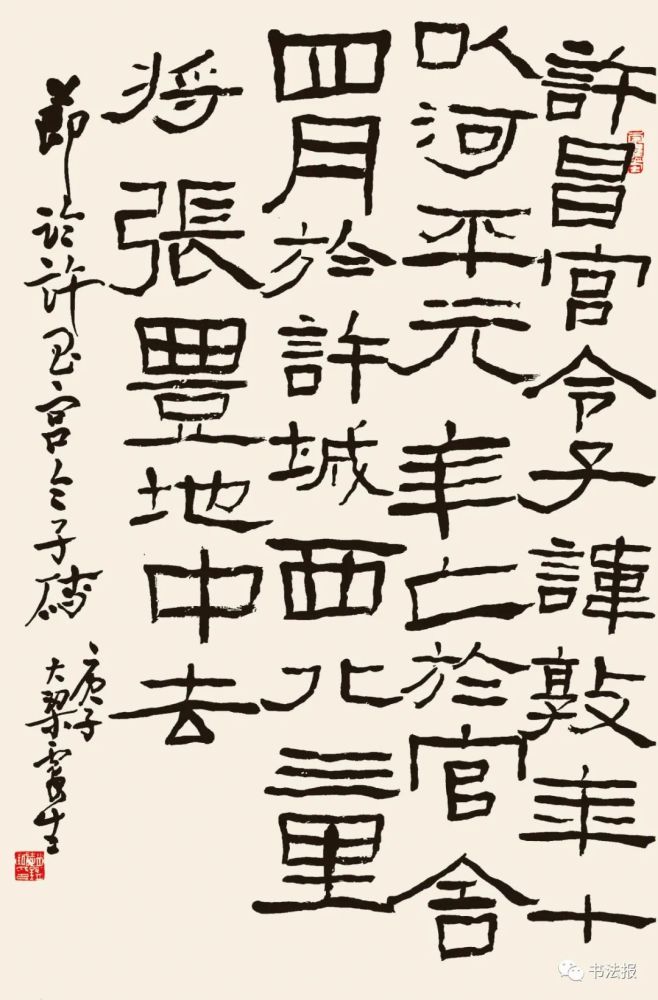 許昌宮令子諱敦年十
㕥河平元年亡於官舍
四月於許城西北三里
將張豊地中去
節臨許昌宮令子磚
庚子
大梁雲生
书法报